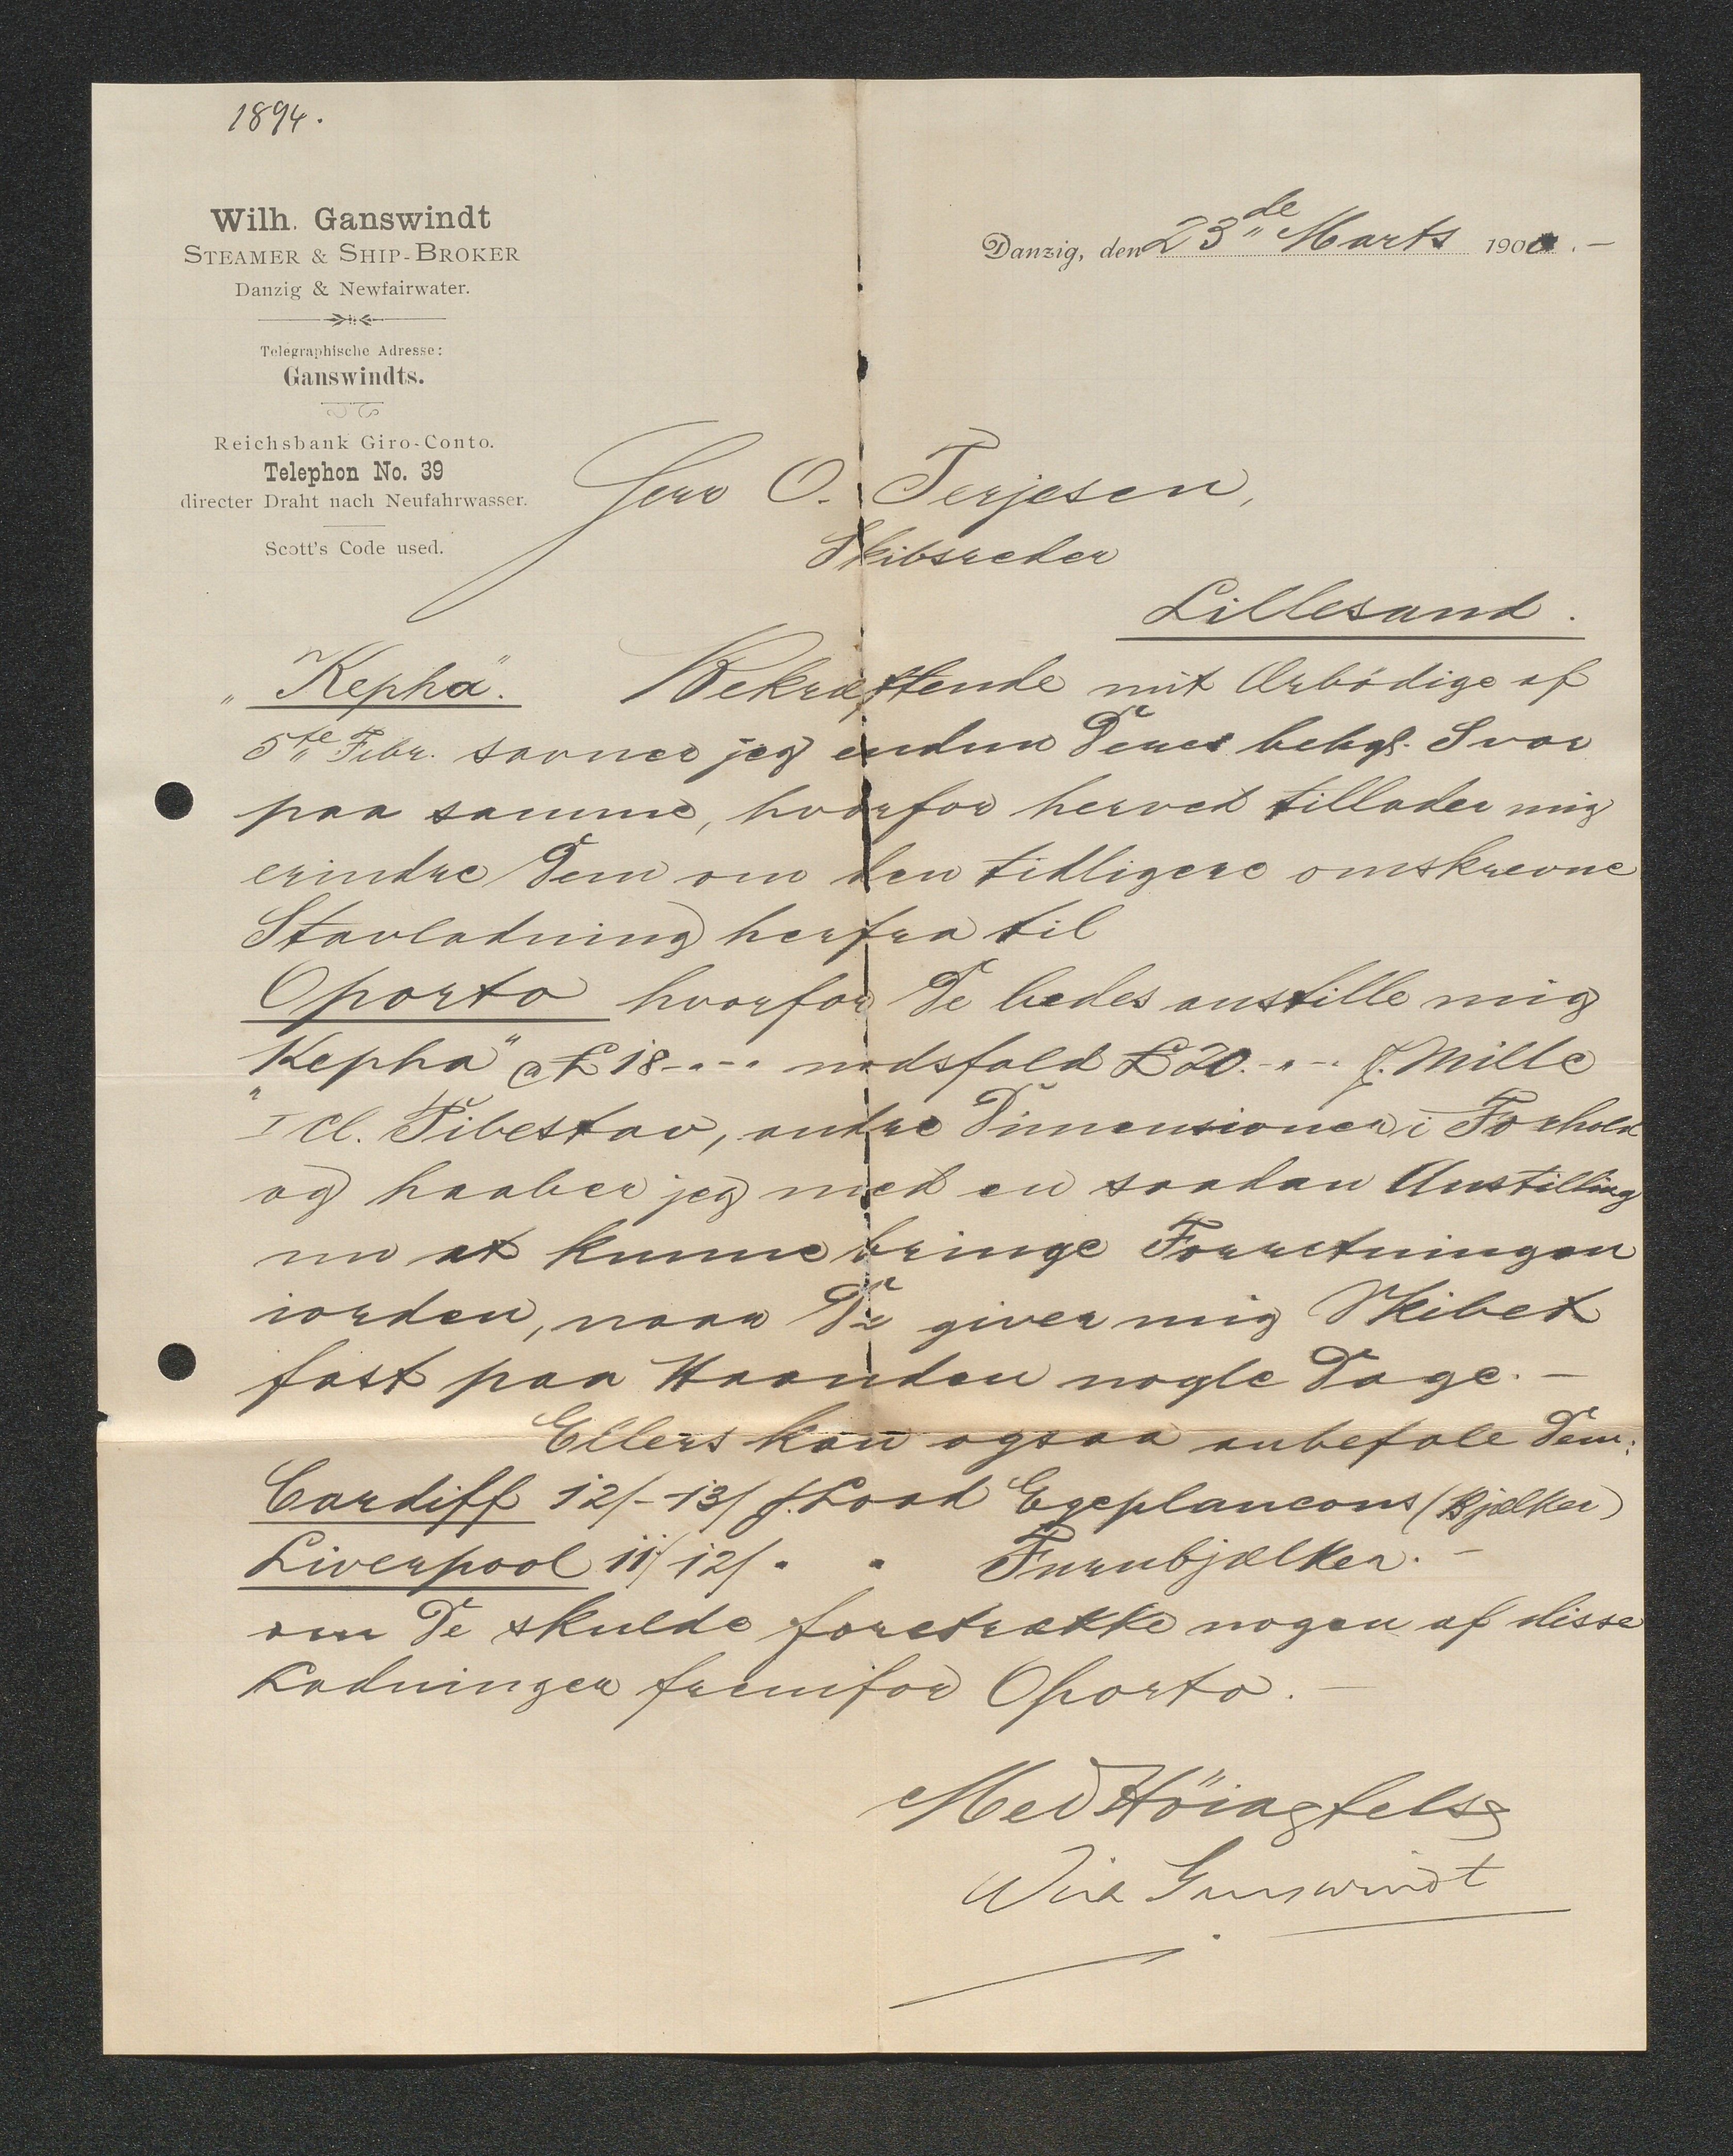 1894.
Wilh. Ganswindt
STEAMER & SHIP-BROKER
Danzig & Newfairwater.
Telegraphische Adresse:
Ganswindts.
Reichsbank Giro-Conto.
Telephon No. 39
directer Draht nach Neufahrwasser.
Scott's Code used.
Danzig, den 23de Marts 1900.-
Herr O. Terjesen,
Skibsreder
Lillesand.
"Kepha". Bekræftende mit Ærbödige af
5te Febr. savner jeg endnu Deres behgl. Svar
paa samme, hvorfor herved tillader mig
erindre Dem om den tidligere omskrevne
Stavladning herfra til
Oporto hvorfor De bedes anstille mig
"Kepha" a £ 18.-.- nödsfald £ 20.-.- p. Mille
I cl. Pibestav, andre Dimensioner i Forhold
og haaber jeg med en saadan Anstilling
nu at kunne bringe Forretningen
iorden, naar De giver mig Skibet
fast paa Haanden nogle Dage. -
Ellers kan ogsaa anbefale Dem:
Cardiff 12/-13/ p. Load Egeplancons (Bjælker)
Liverpool 11/ 12/ " " Furubjælker. -
om De skulde foretrække nogen af disse
Ladninger fremfor Oporto. -
Med Höiagtelse
Wilh Ganswindt